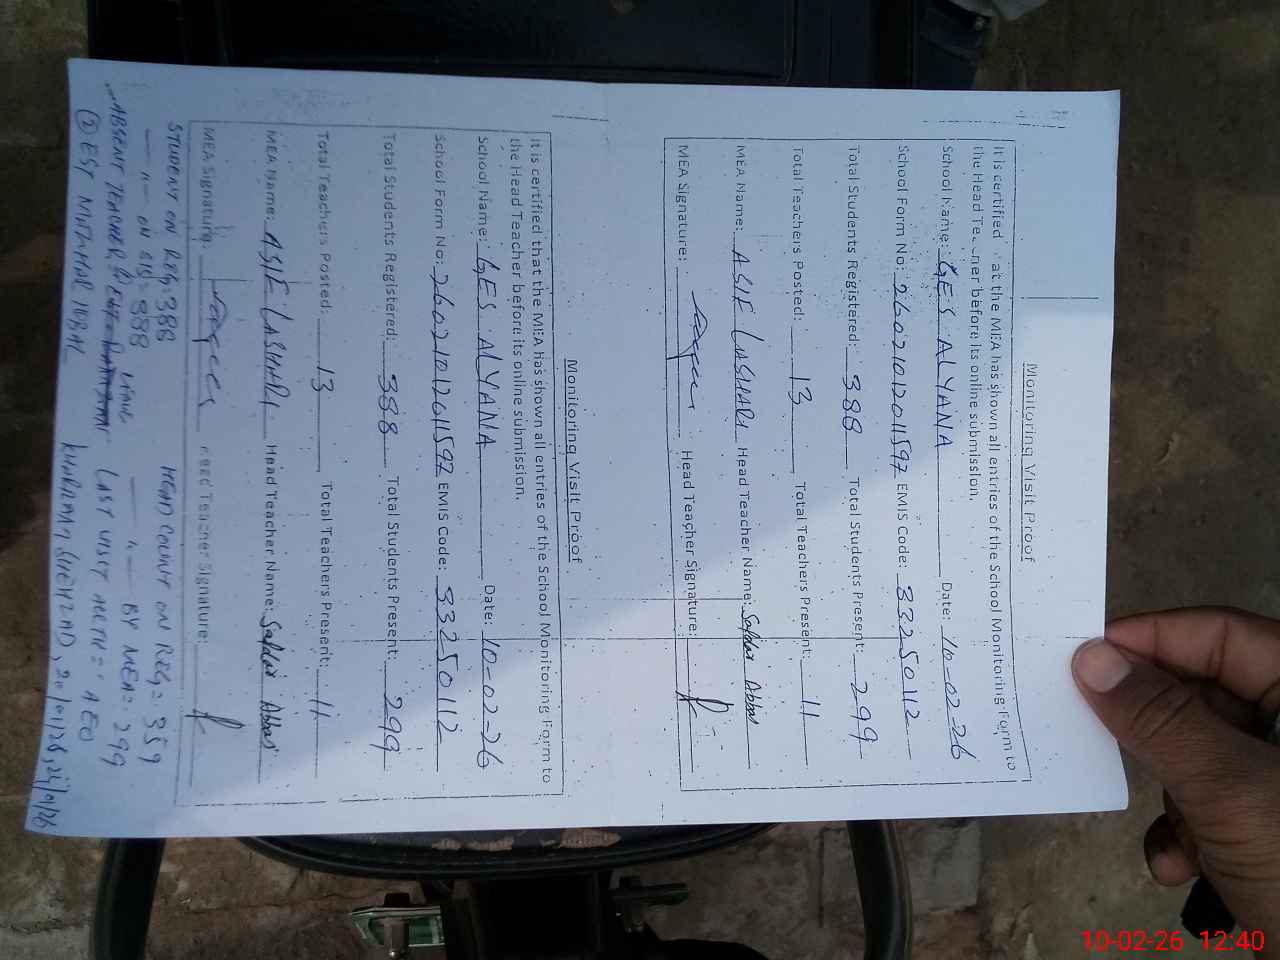 Monitoring Visit Proof
It is certified that the MEA has shown all entries of the School Monitoring Form to
the Head Teacher before its online submission.
School Name: GES ALYANA Date: 10-02-26
School Form No: 26021012011597 EMIS Code: 33250112
Total Students Registered: 388 Total Students Present: 299
Total Teachers Posted: 13 Total Teachers Present: 11
MEA Name: ASIF LASHARI Head Teacher Name: Safdar Abbas
MEA Signature: Head Teacher Signature:
Monitoring Visit Proof
It is certified that the MEA has shown all entries of the School Monitoring Form to
the Head Teacher before its online submission.
School Name: GES ALYANA Date: 10-02-26
School Form No: 26021012011597 EMIS Code: 33250112
Total Students Registered: 388 Total Students Present: 299
Total Teachers Posted: 13 Total Teachers Present: 11
MEA Name: ASIF LASHARI Head Teacher Name: Safdar Abbas
MEA Signature: Head Teacher Signature:
STUDENT ON REG 388 HEAD COUNT ON REG = 359
— 〃 — ON SIS = 388 — 〃 — BY MEA = 299
ABSENT TEACHER LEAVE LAST VISIT = AEO
② EST MUZHAR IQBAL KHURRAM SHEHZAD,
10-02-26 12:40